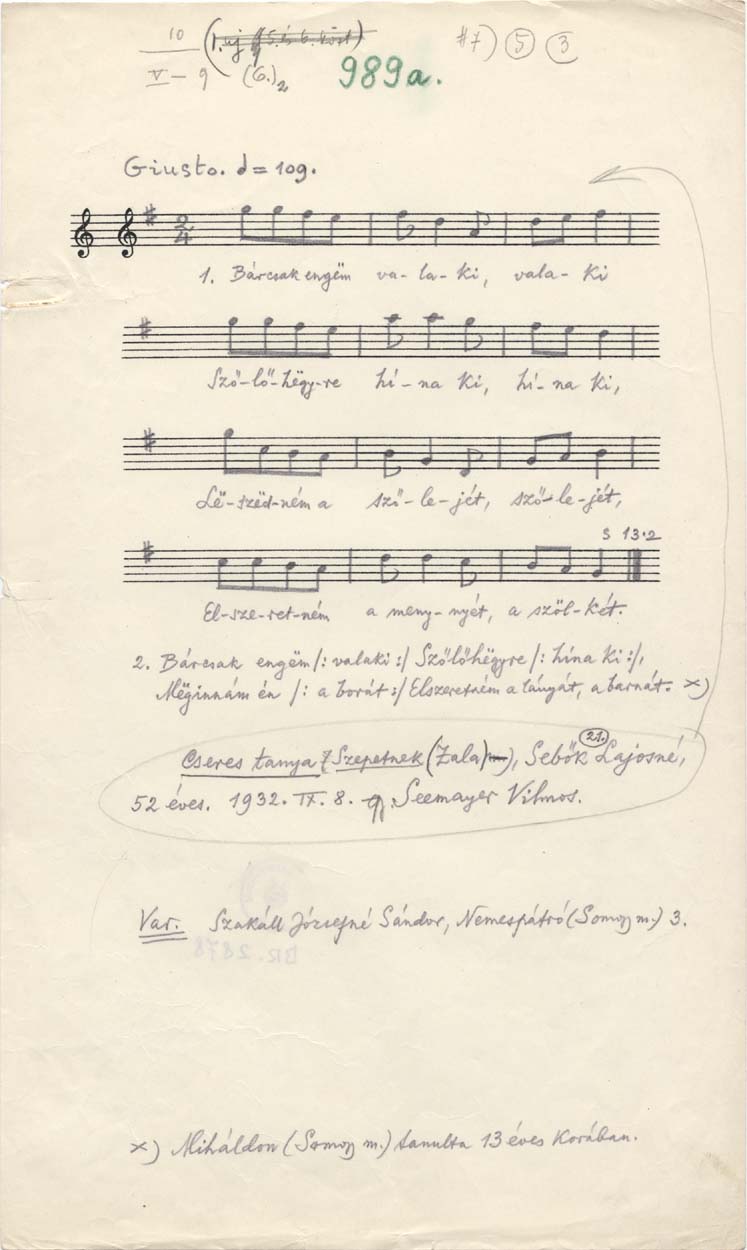 10
V – 9
(I. új 5. és 6. köst)
(6.)2
#7) 5 3
989a.
Giusto. d = 109.
2
4
1. Bárcsak engëm va-la-ki, vala-ki
Sző-lő-hëgy-re hí-na ki, hí-na ki,
Lë-szëd-ném a sző-le-jét, sző-le-jét,
S 13·2
El-sze-ret-ném a meny-nyét, a szöl-két.
2. Bárcsak engëm /: valaki :/ Szőlőhëgyre /: hína ki :/,
Mëginnám én /: a borát :/ Elszeretném a lányát, a barnát. x)
21.
Cseres tanya Szepetnek (Zala), Sebők Lajosné,
52 éves. 1932. IX. 8. Seemayer Vilmos.
Var. Szakáll Józsefné Sándor, Nemespátró (Somogy m.) 3.
BR. 2878
x) Miháldon (Somogy m.) tanulta 13 éves korában.